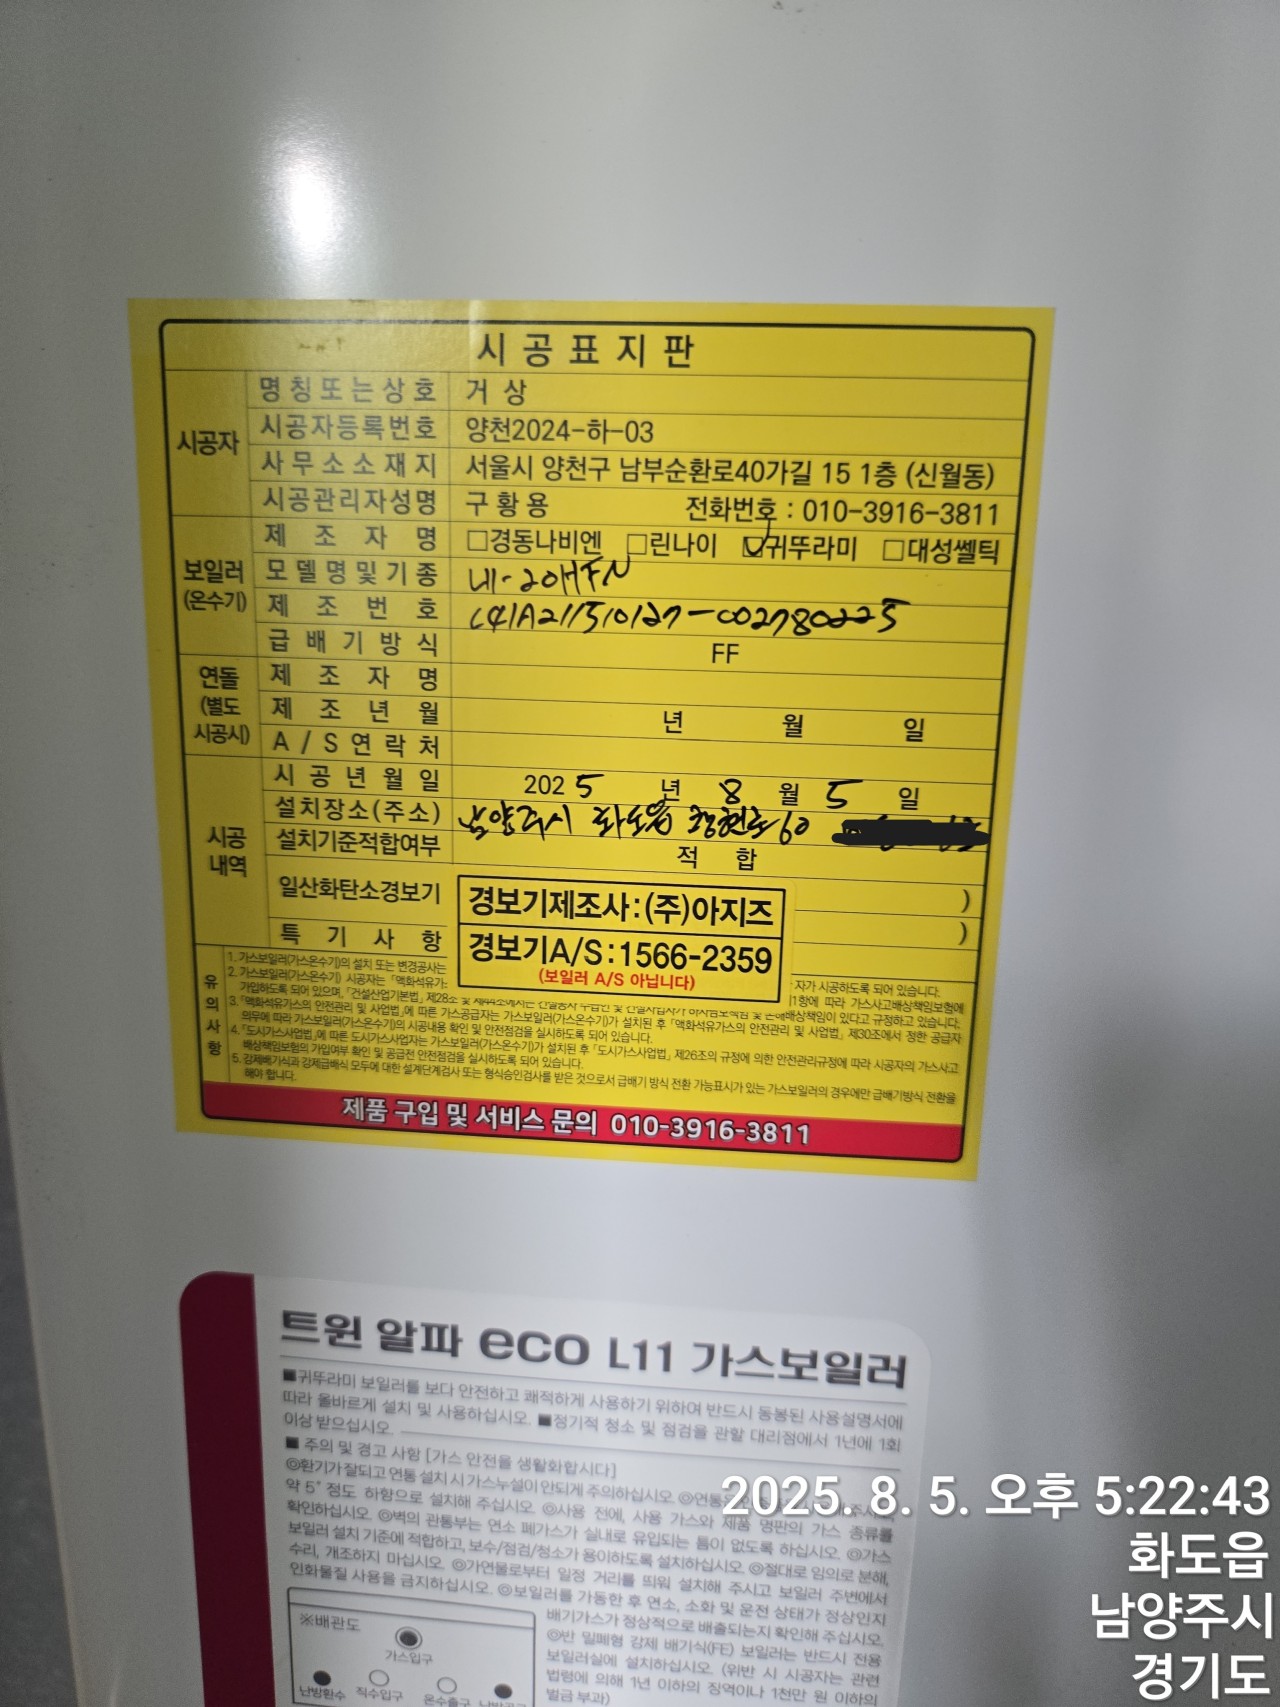 시공표지판
시공자
명칭또는상호 거상
시공자등록번호 양천2024-하-03
사무소소재지 서울시 양천구 남부순환로40가길 15 1층 (신월동)
시공관리자성명 구황용 전화번호 : 010-3916-3811
보일러
(온수기)
제조자명 □경동나비엔 □린나이 ☑귀뚜라미 □대성쎌틱
모델명및기종 네-20HFN
제조번호
급배기방식 FF
연돌
(별도
시공시)
제조자명
제조년월 년 월 일
A/S연락처
시공
내역
시공년월일 2025년 8월 5일
설치장소(주소) 남양주시 화도읍 60
설치기준적합여부 적합
일산화탄소경보기 )
특기사항 )
경보기제조사:(주)아지즈
경보기A/S:1566-2359
(보일러 A/S 아닙니다)
유의사항
1. 가스보일러(가스온수기)의 설치 또는 변경공사는 자가 시공하도록 되어 있습니다.
2. 가스보일러(가스온수기) 시공자는 「액화석유가 1항에 따라 가스사고배상책임보험에
가입하도록 되어 있으며, 「건설산업기본법」 제28조 및 배상책임이 있다고 규정하고 있습니다.
3. 「액화석유가스의 안전관리 및 사업법」에 따른 가스공급자는 가스보일러(가스온수기)가 설치된 후 「액화석유가스의 안전관리 및 사업법」 제30조에서 정한 공급자
의무에 따라 가스보일러(가스온수기)의 시공내용 확인 및 안전점검을 실시하도록 되어 있습니다.
4. 「도시가스사업법」에 따른 도시가스사업자는 가스보일러(가스온수기)가 설치된 후 「도시가스사업법」 제26조의 규정에 의한 안전관리규정에 따라 시공자의 가스사고
배상책임보험의 가입여부 확인 및 공급전 안전점검을 실시하도록 되어 있습니다.
5. 강제배기식과 강제급배식 모두에 대한 설계단계검사 또는 형식승인검사를 받은 것으로서 급배기 방식 전환 가능표시가 있는 가스보일러의 경우에만 급배기방식 전환을
해야 합니다.
제품 구입 및 서비스 문의 010-3916-3811
트윈 알파 eco L11 가스보일러
■귀뚜라미 보일러를 보다 안전하고 쾌적하게 사용하기 위하여 반드시 동봉된 사용설명서에
따라 올바르게 설치 및 사용하십시오. ■정기적 청소 및 점검을 관할 대리점에서 1년에 1회
이상 받으십시오.
■ 주의 및 경고 사항 [가스 안전을 생활화합시다]
◎환기가 잘되고 연통 설치 시 가스누설이 안되게 주의하십시오. ◎연통은
약 5° 정도 하향으로 설치해 주십시오. ◎사용 전에, 사용 가스와 제품 명판의 가스 종류를
확인하십시오. ◎벽의 관통부는 연소 폐가스가 실내로 유입되는 틈이 없도록 하십시오. ◎가스
보일러 설치 기준에 적합하고, 보수/점검/청소가 용이하도록 설치하십시오. ◎절대로 임의로 분해,
수리, 개조하지 마십시오. ◎가연물로부터 일정 거리를 띄워 설치해 주시고 보일러 주변에서
인화물질 사용을 금지하십시오. ◎보일러를 가동한 후 연소, 소화 및 운전 상태가 정상인지
배기가스가 정상적으로 배출되는지 확인해 주십시오.
◎반 밀폐형 강제 배기식(FE) 보일러는 반드시 전용
보일러실에 설치하십시오. (위반 시 시공자는 관련
법령에 의해 1년 이하의 징역이나 1천만 원 이하의
벌금 부과)
※배관도
가스입구
난방환수 직수입구 온수출구
2025. 8. 5. 오후 5:22:43
화도읍
남양주시
경기도